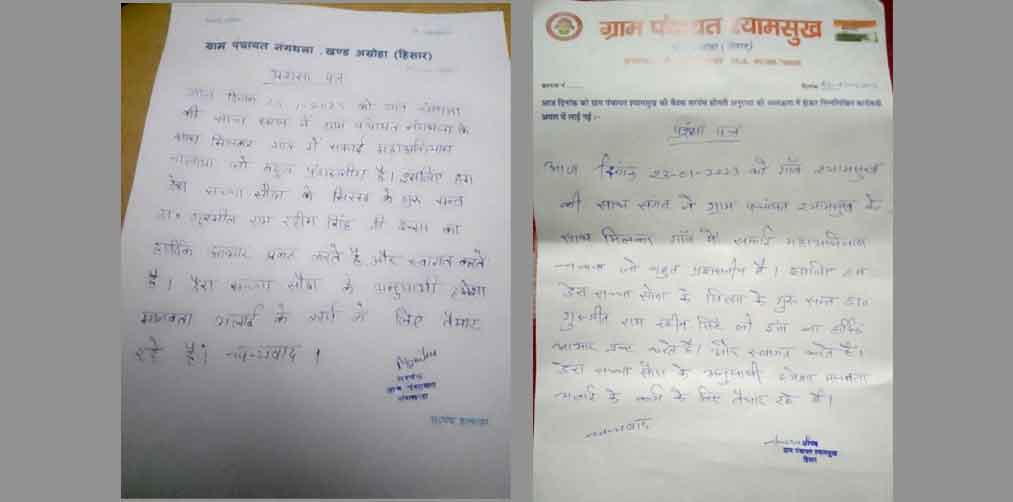 ग्राम पंचायत नंगथला, खण्ड अग्रोहा (हिसार)
प्रशंसा पत्र
आज दिनांक 23-1-2023 को गांव नंगथला
की साध संगत ने ग्राम पंचायत नंगथला के
साथ मिलकर गांव में सफाई महाअभियान
चलाया जो बहुत प्रशंसनीय है। इसलिए हम
डेरा सच्चा सौदा के सिरसा के गुरु सन्त
डा० गुरमीत राम रहीम सिंह जी इन्सा का
हार्दिक आभार प्रकट करते है और स्वागत करते
है। डेरा सच्चा सौदा के अनुयायी हमेशा
मानवता भलाई के कार्य के लिए तैयार
रहे है। धन्यवाद।
सरपंच
ग्राम पंचायत
नंगथला
ग्राम पंचायत श्यामसुख
दिनांक
आज दिनांक को ग्राम पंचायत श्यामसुख की बैठक सरपंच श्रीमती अनुराधा की अध्यक्षता में होकर निम्नलिखित कार्यवाही
अमल में लाई गई :-
प्रशंसा पत्र
आज दिनांक 23-01-2023 को गाँव श्यामसुख
की साध संगत ने ग्राम पंचायत श्यामसुख के
साथ मिलकर गाँव में सफाई महाअभियान
चलाया जो बहुत प्रशंसनीय है। इसलिए हम
डेरा सच्चा सौदा के सिरसा के गुरु सन्त डा०
गुरमीत राम रहीम सिंह जी इंसा का हार्दिक
आभार प्रकट करते है। और स्वागत करते है।
डेरा सच्चा सौदा के अनुयायी हमेशा मानवता
भलाई के कार्य के लिए तैयार रहे है।
धन्यवाद
सरपंच
ग्राम पंचायत श्यामसुख
हिसार